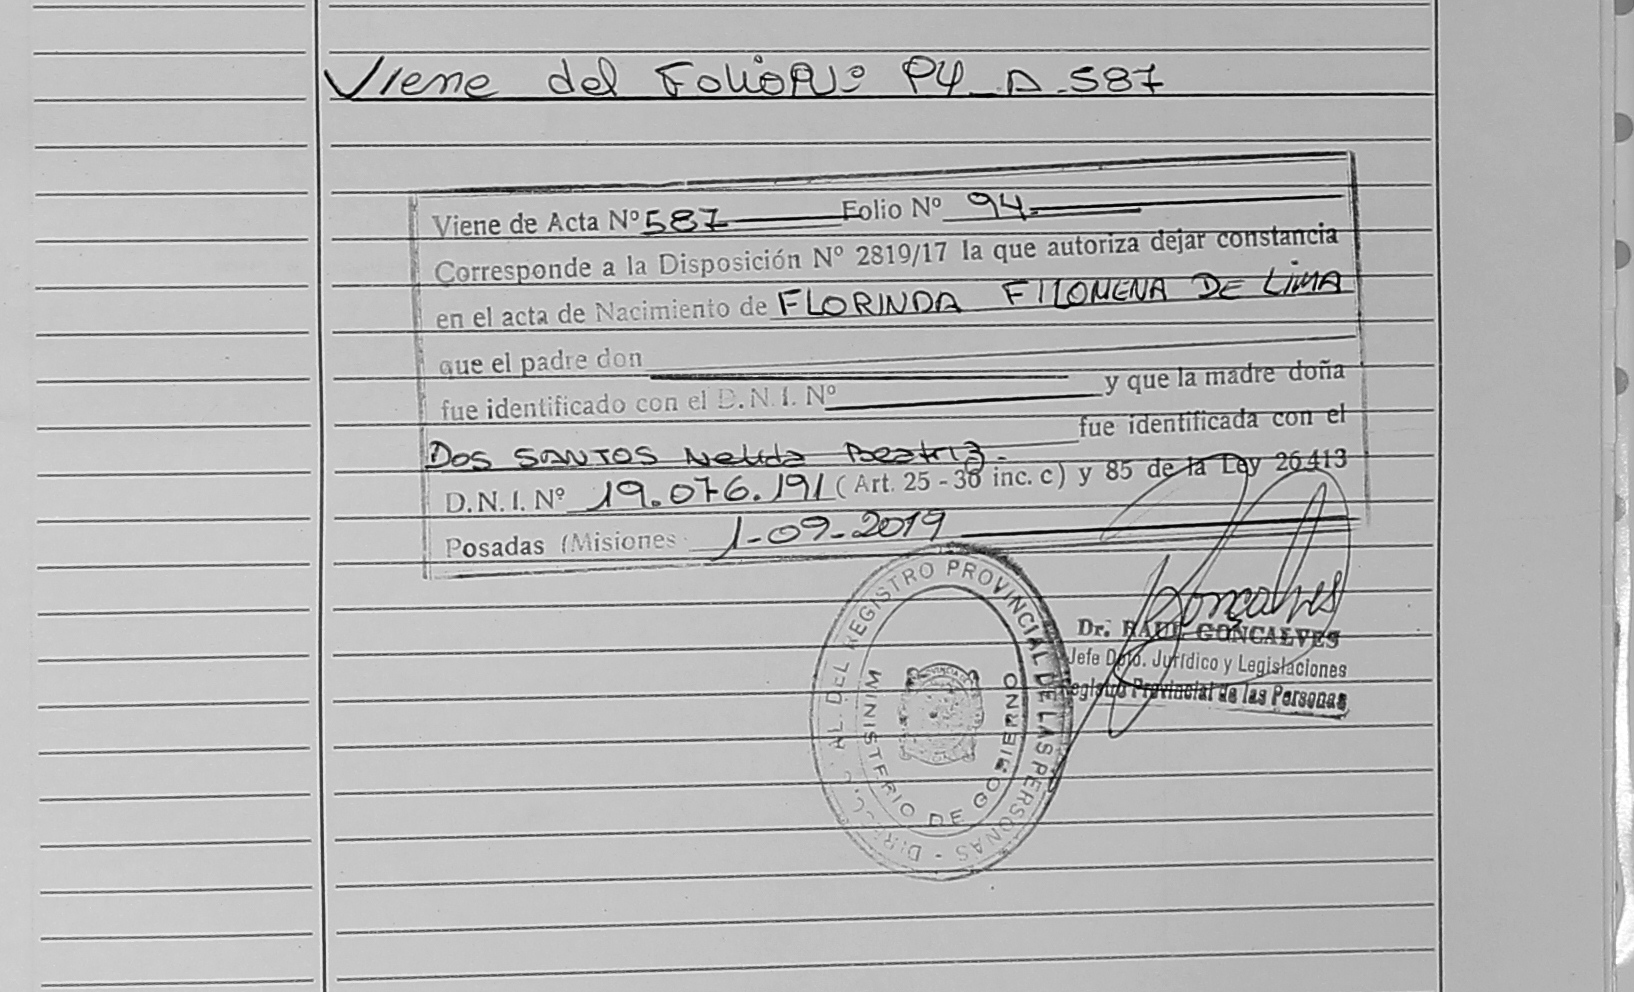 Viene del Folio Nº 94 A 587
Viene de Acta Nº 587 Folio Nº 94
Corresponde a la Disposición Nº 2819/17 la que autoriza dejar constancia
en el acta de Nacimiento de FLORINDA FILOMENA DE LIMA
que el padre don
fue identificado con el D.N.I. Nº y que la madre doña
DOS SANTOS Nelida Beatriz fue identificada con el
D.N.I. Nº 19.076.191 (Art. 25 - 36 inc. c) y 85 de la Ley 26413
Posadas (Misiones 1-09-2019
DEL REGISTRO PROVINCIAL DE LAS PERSONAS
MINISTERIO DE GOBIERNO
Dr. RAUL GONCALVES
Jefe Dpto. Jurídico y Legislaciones
Registro Provincial de las Personas